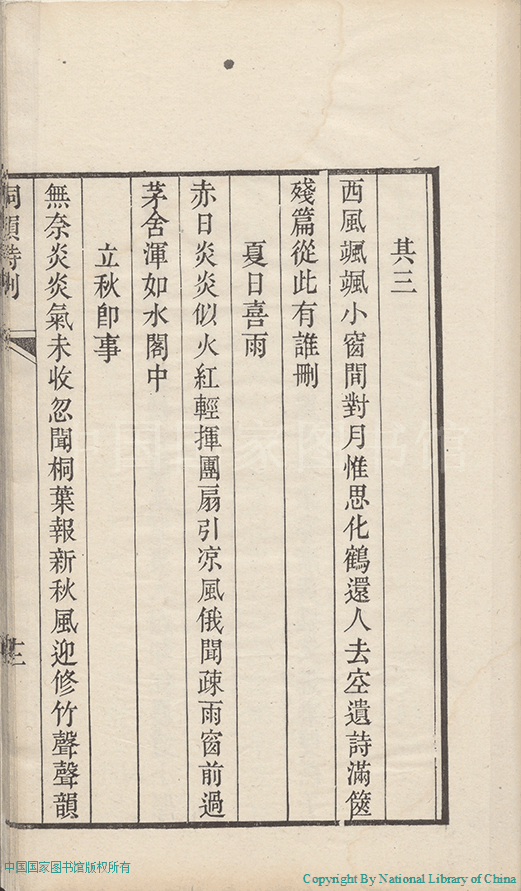 其三
西風颯颯小窗間對月惟思化鶴還人去空遺詩滿篋
殘篇從此有誰刪
夏日喜雨
赤日炎炎似火紅輕揮團扇引凉風俄聞疎雨窗前過
茅舍渾如水閣中
立秋卽事
無奈炎炎氣未收忽聞桐葉報新秋風迎修竹聲聲韻
中国国家图书馆
中国国家图书馆版权所有
Copyright By National Library of China